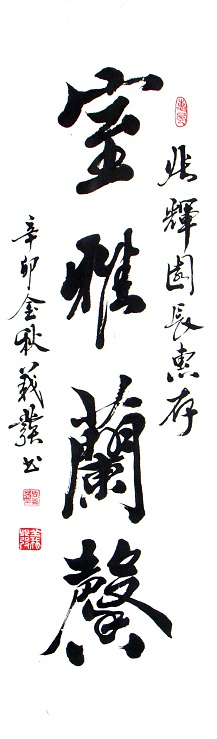 兆輝園長惠存
室雅蘭馨
辛卯金秋義發书